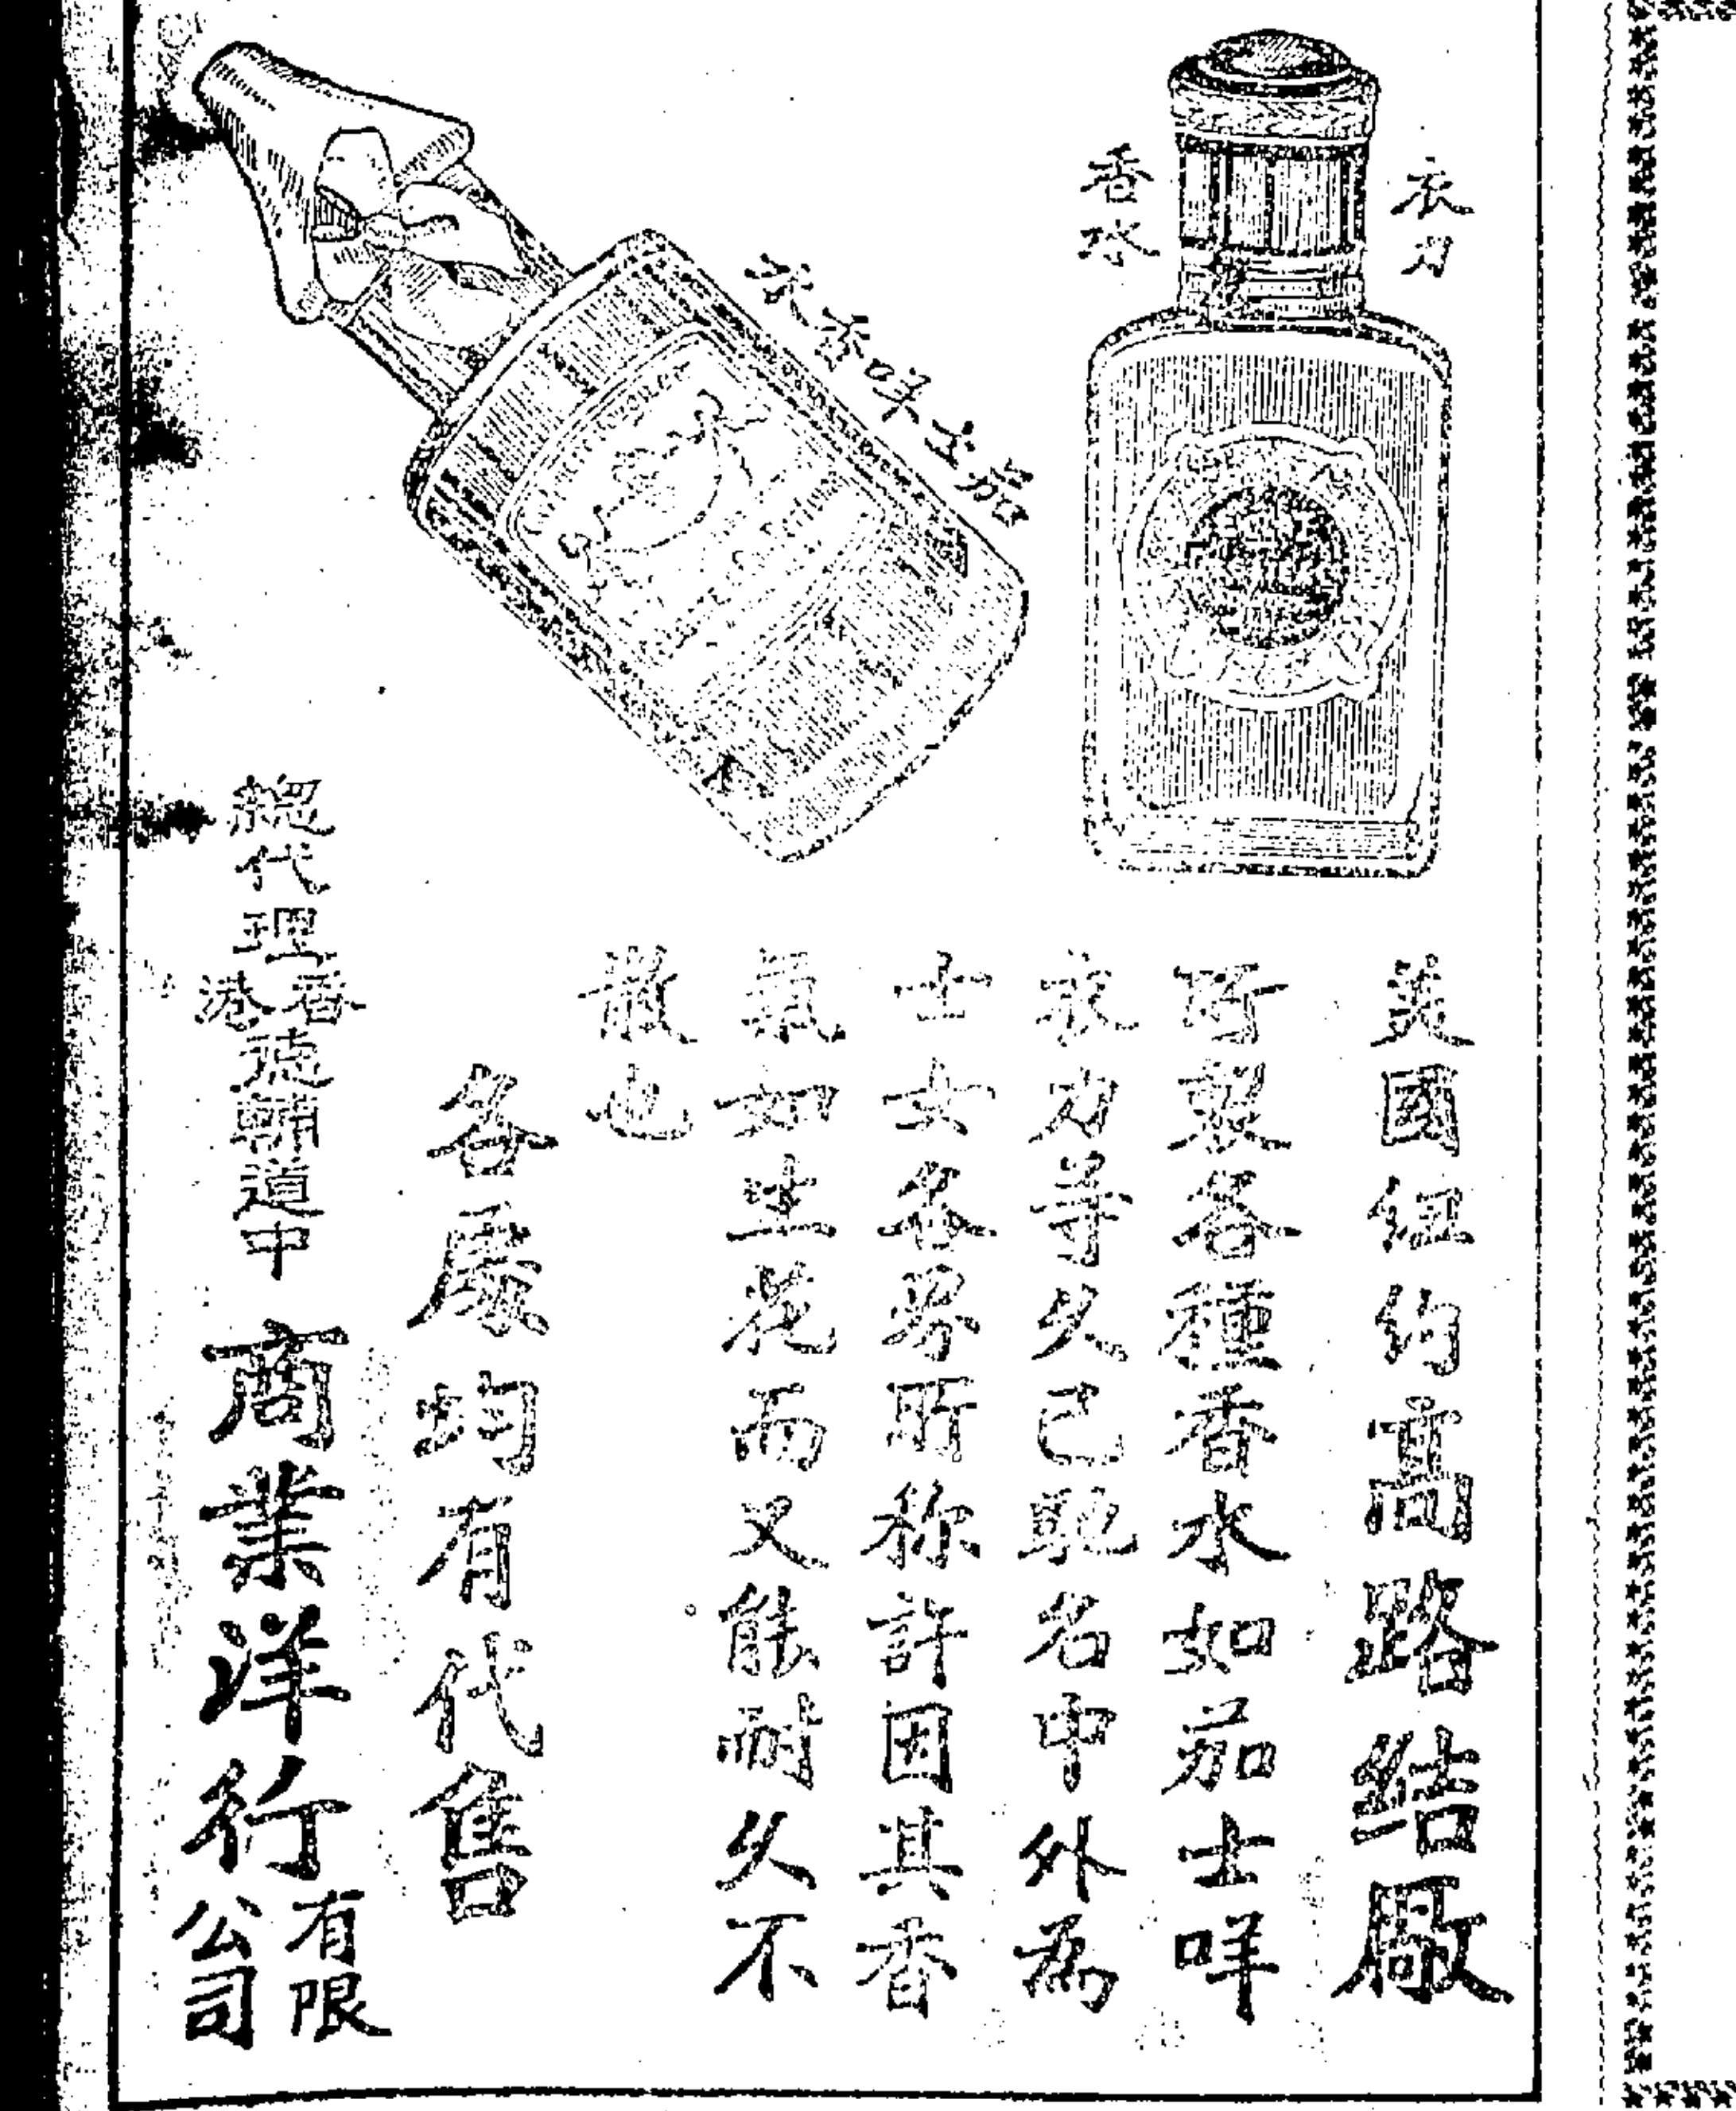 衣力
香水
茄士咩香水
美國紐約高路结廠
所製各種香水如茄士咩
衣力等久已馳名中外為
士女各界所称許因其香
氣如生花而又能耐久不
散也
各處均有代售
總代理香港德輔道中商業洋行有限公司